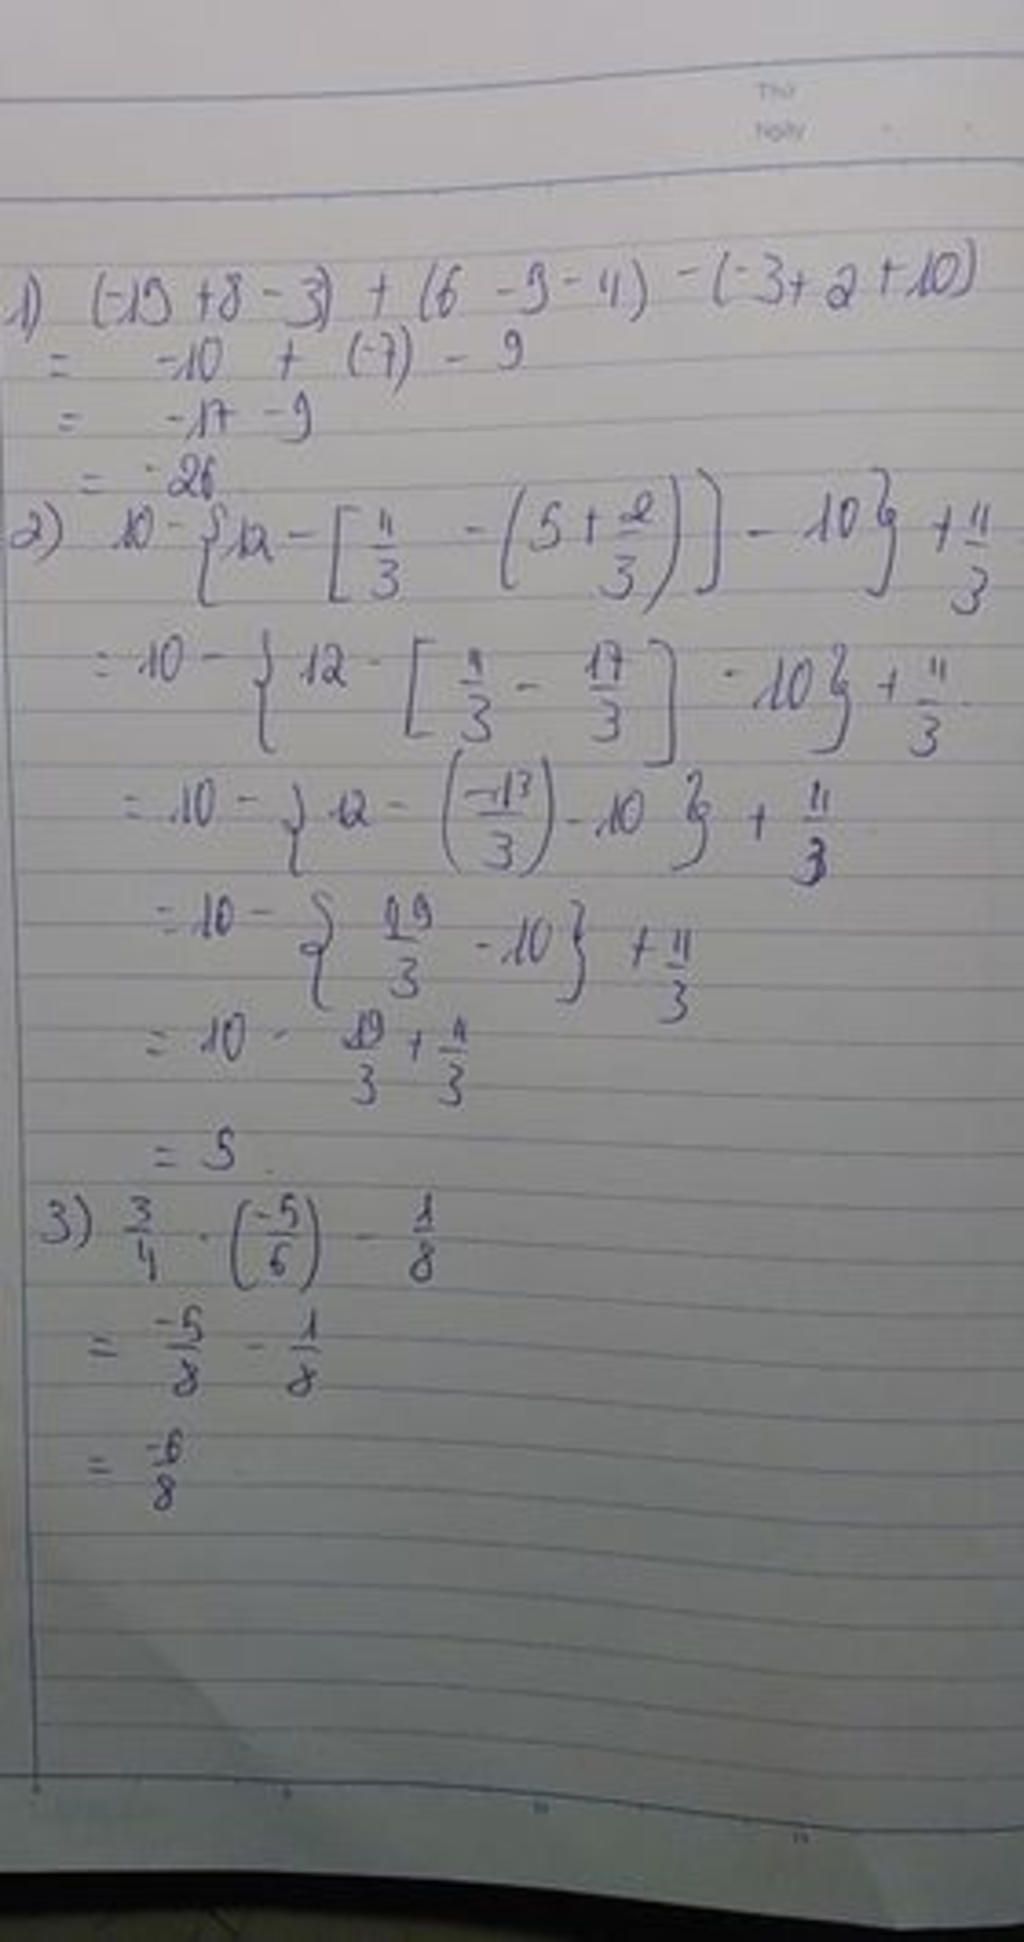 Thứ
Ngày
1) (-15 + 8 - 3) + (6 - 9 - 4) - (-3 + 2 + 10)
= -10 + (-7) - 9
= -17 - 9
= -26
2) 10 - {12 - [4/3 - (5 + 2/3)] - 10} + 4/3
= 10 - {12 - [4/3 - 17/3] - 10} + 4/3
= 10 - {12 - (-13/3) - 10} + 4/3
= 10 - {49/3 - 10} + 4/3
= 10 - 19/3 + 4/3
= 5
3) 3/4 . (-5/6) - 1/8
= -5/8 - 1/8
= -6/8